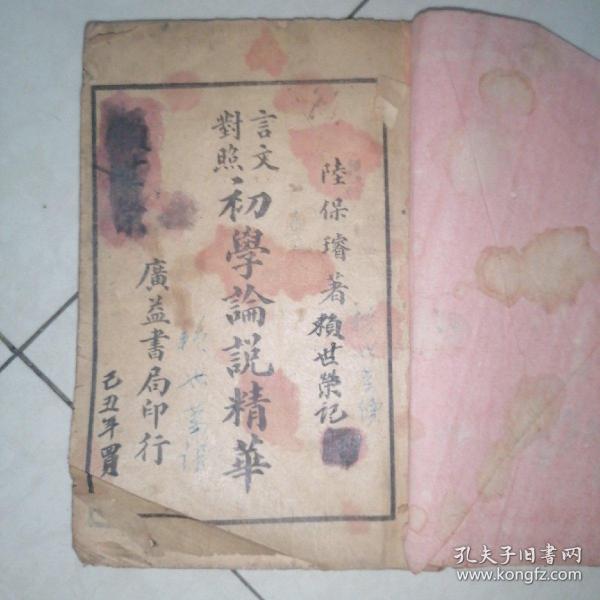 陸保璿著
賴世榮記
言文
對照
初學論說精華
廣益書局印行
己丑年買
孔夫子旧书网
www.kongfz.com